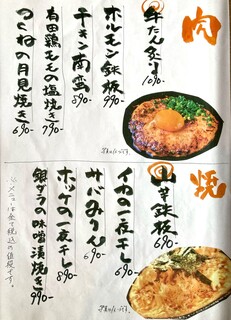 肉
牛たん炙り
1090-
ホルモン鉄板
990-
チキン南蛮
890-
有田鶏ももの塩焼き
790-
つくねの月見焼き
690-
焼
山芋鉄板
690-
イカの一夜干し
690-
サバみりん
690-
ホッケの一夜干し
890-
銀ダラの味噌漬焼き
990-